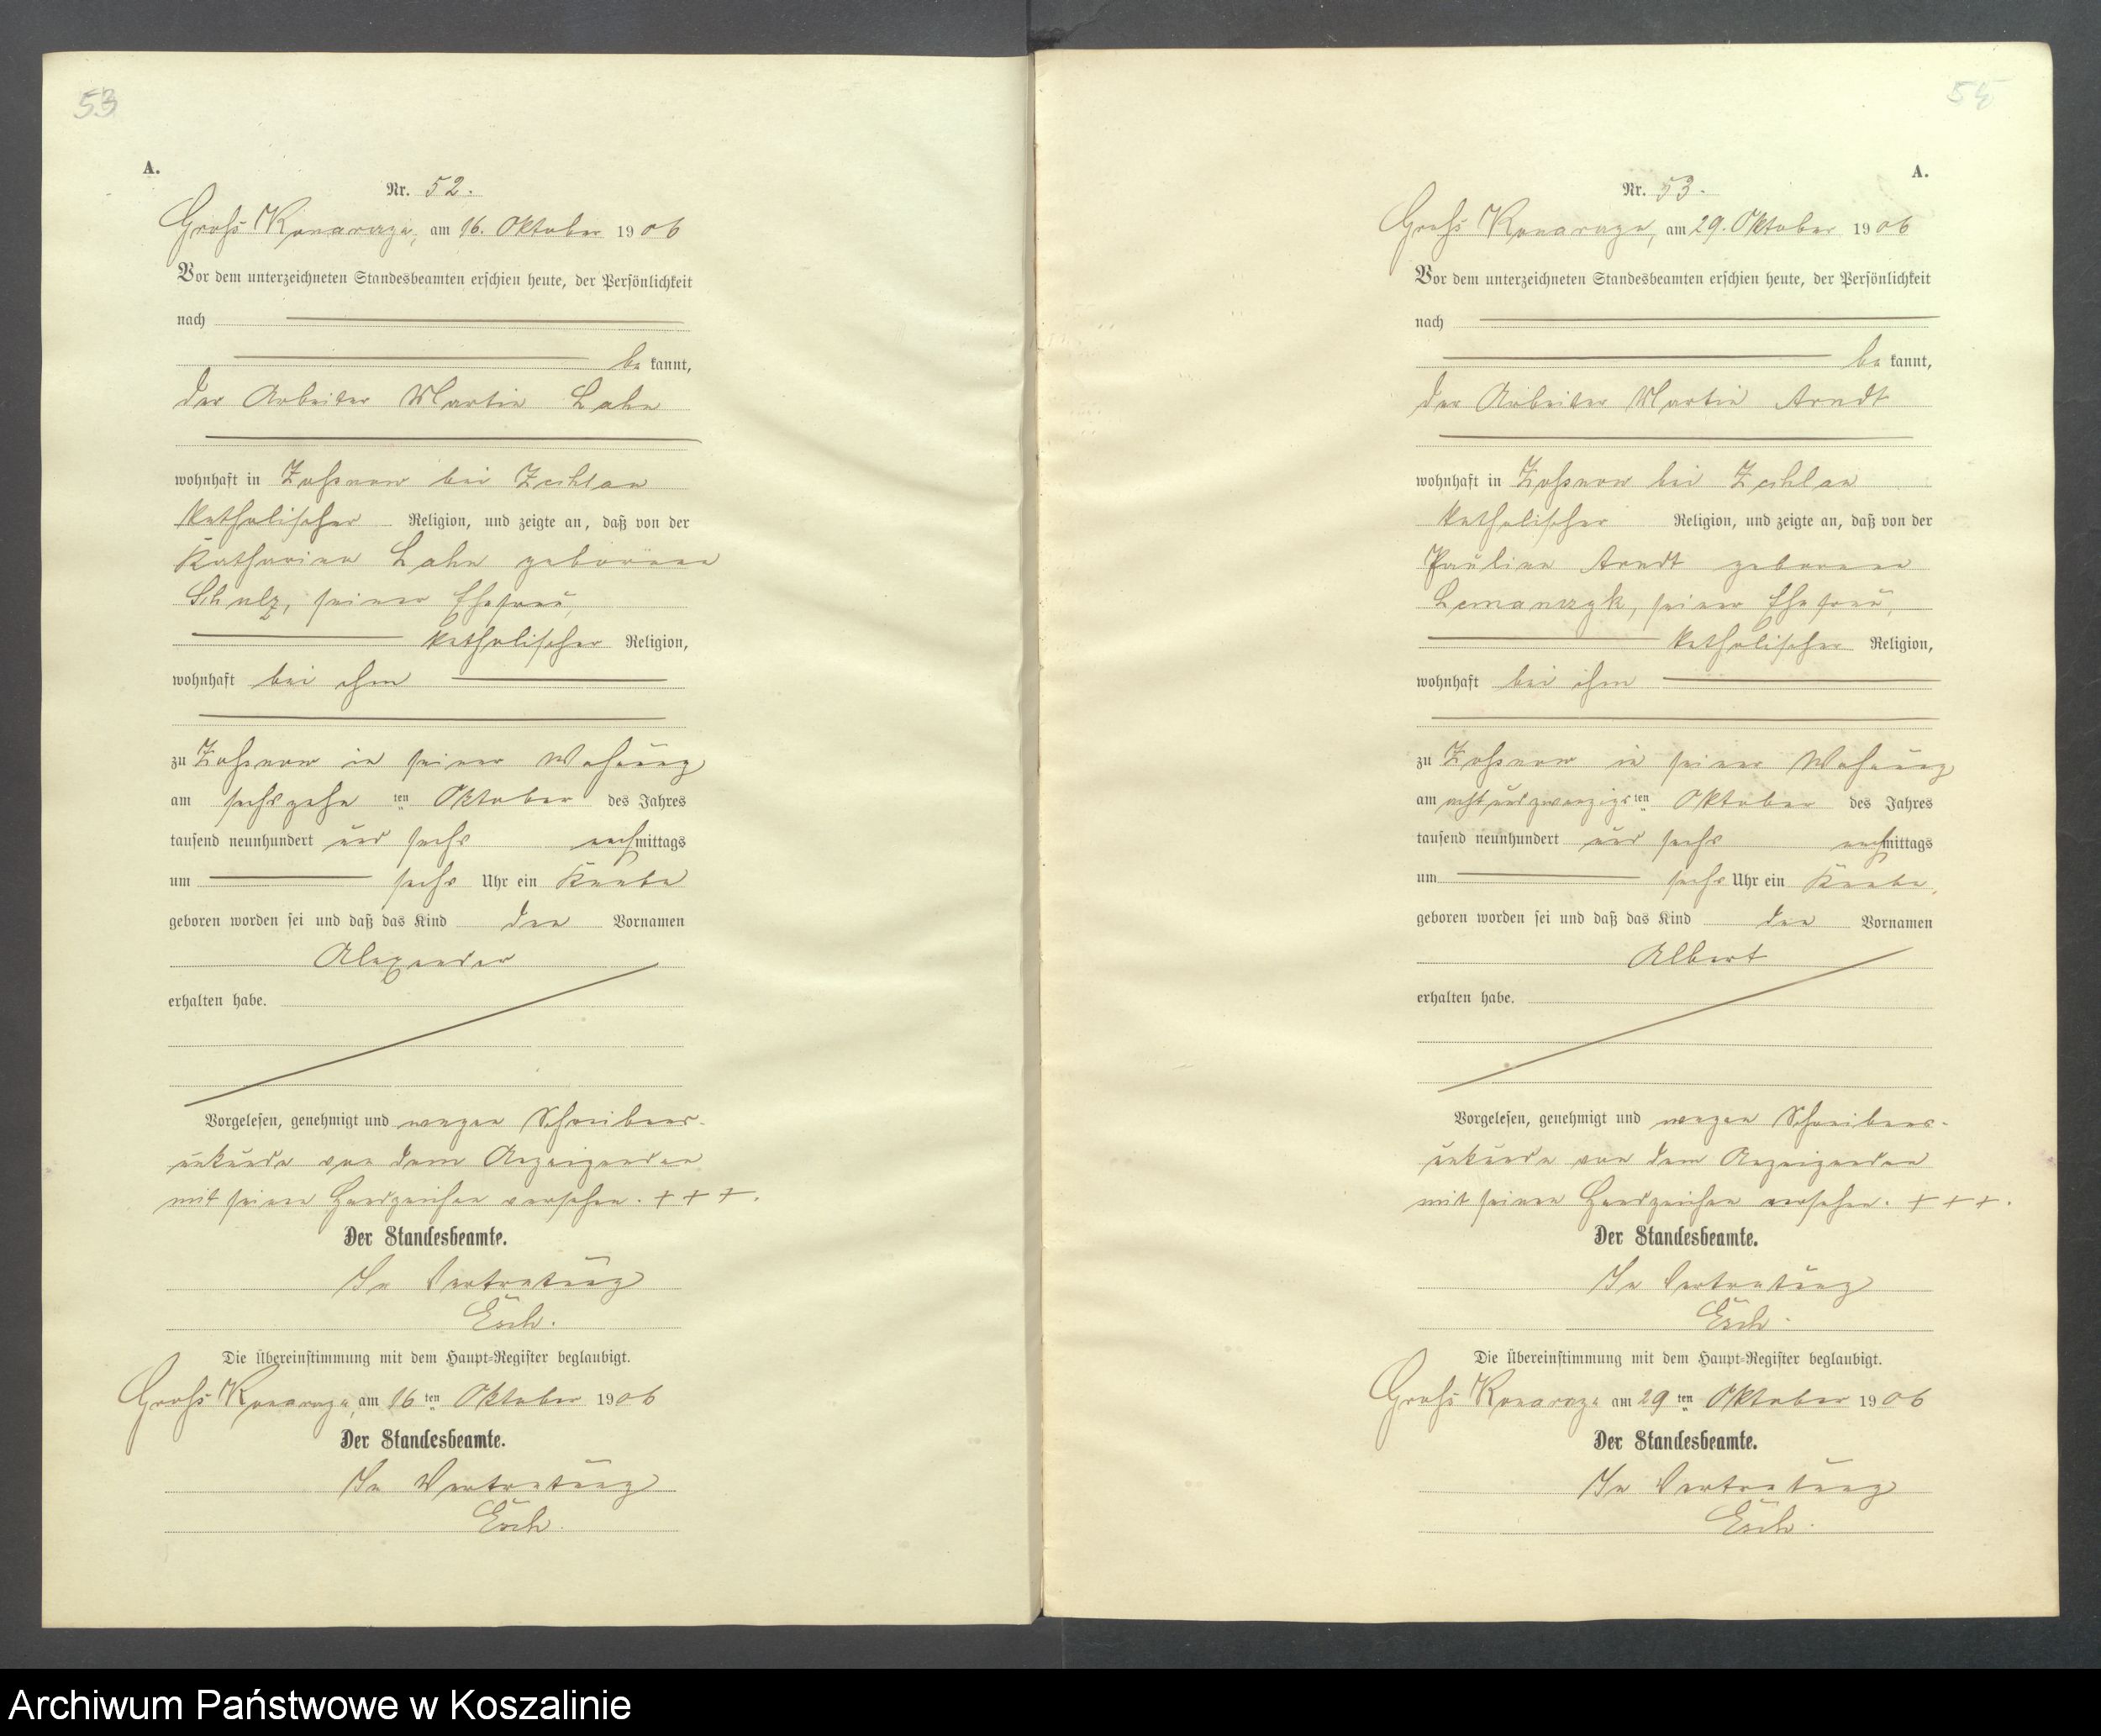 53
A.
Nr. 52.
Groß Konarczyn, am 16. Oktober 1906
Vor dem unterzeichneten Standesbeamten erschien heute, der Persönlichkeit
nach
be kannt,
der Arbeiter Martin Lahn
wohnhaft in Zossnow bei Zechlau
katholischer Religion, und zeigte an, daß von der
Katharina Lahn geborenen
Schulz, seiner Ehefrau,
katholischer Religion,
wohnhaft bei ihm
zu Zossnow in seiner Wohnung
am sechszehn ten Oktober des Jahres
tausend neunhundert und sechs nachmittags
um sechs Uhr ein Knabe
geboren worden sei und daß das Kind den Vornamen
Alexander
erhalten habe.
Vorgelesen, genehmigt und wegen Schreibens-
unkunde von dem Anzeigenden
mit seinen Handzeichen versehen. + + +.
Der Standesbeamte.
In Vertretung
Esch.
Die Übereinstimmung mit dem Haupt-Register beglaubigt.
Groß Konarczyn, am 16 ten Oktober 1906
Der Standesbeamte.
In Vertretung
Esch.
A.
Nr. 53.
Groß Konarczyn, am 29. Oktober 1906
Vor dem unterzeichneten Standesbeamten erschien heute, der Persönlichkeit
nach
be kannt,
der Arbeiter Martin Arndt
wohnhaft in Zossnow bei Zechlau
katholischer Religion, und zeigte an, daß von der
Pauline Arndt geborenen
Lemanczyk, seiner Ehefrau,
katholischer Religion,
wohnhaft bei ihm
zu Zossnow in seiner Wohnung
am achtundzwanzigsten Oktober des Jahres
tausend neunhundert und sechs nachmittags
um sechs Uhr ein Knabe,
geboren worden sei und daß das Kind den Vornamen
Albert
erhalten habe.
Vorgelesen, genehmigt und wegen Schreibens-
unkunde von dem Anzeigenden
mit seinen Handzeichen versehen. + + +.
Der Standesbeamte.
In Vertretung
Esch.
Die Übereinstimmung mit dem Haupt-Register beglaubigt.
Groß Konarczyn am 29 ten Oktober 1906
Der Standesbeamte.
In Vertretung
Esch.
Archiwum Państwowe w Koszalinie